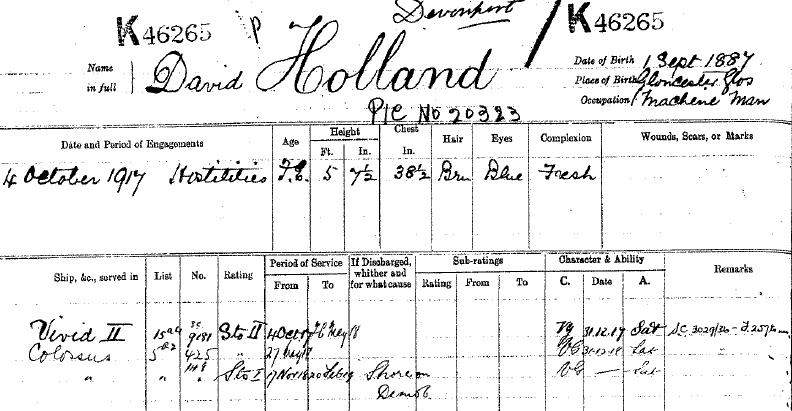 K 46265 P Devonport K 46265
Name in full David Holland
Date of Birth 1 Sept 1887
Place of Birth Gloucester, Glos
Occupation Machene Man
P/C No 20323
Date and Period of Engagements Age Height Ft. In. Chest In. Hair Eyes Complexion Wounds, Scars, or Marks
4 October 1917 Hostilities 5 7½ 38½ Brn Blue Fresh
Ship, &c., served in List No. Rating Period of Service From To If Discharged, whither and for what cause Sub-ratings Rating From To Character & Ability C. Date A. Remarks
Vivid II Sto II 4 Oct 17 VG 31.12.17 Sat
Colossus 425 " 27 May 18 VG 31.12.18 Sat
" " " Sto I 17 Nov 18 20 Feb 19 Shore on VG — Sat
Demob